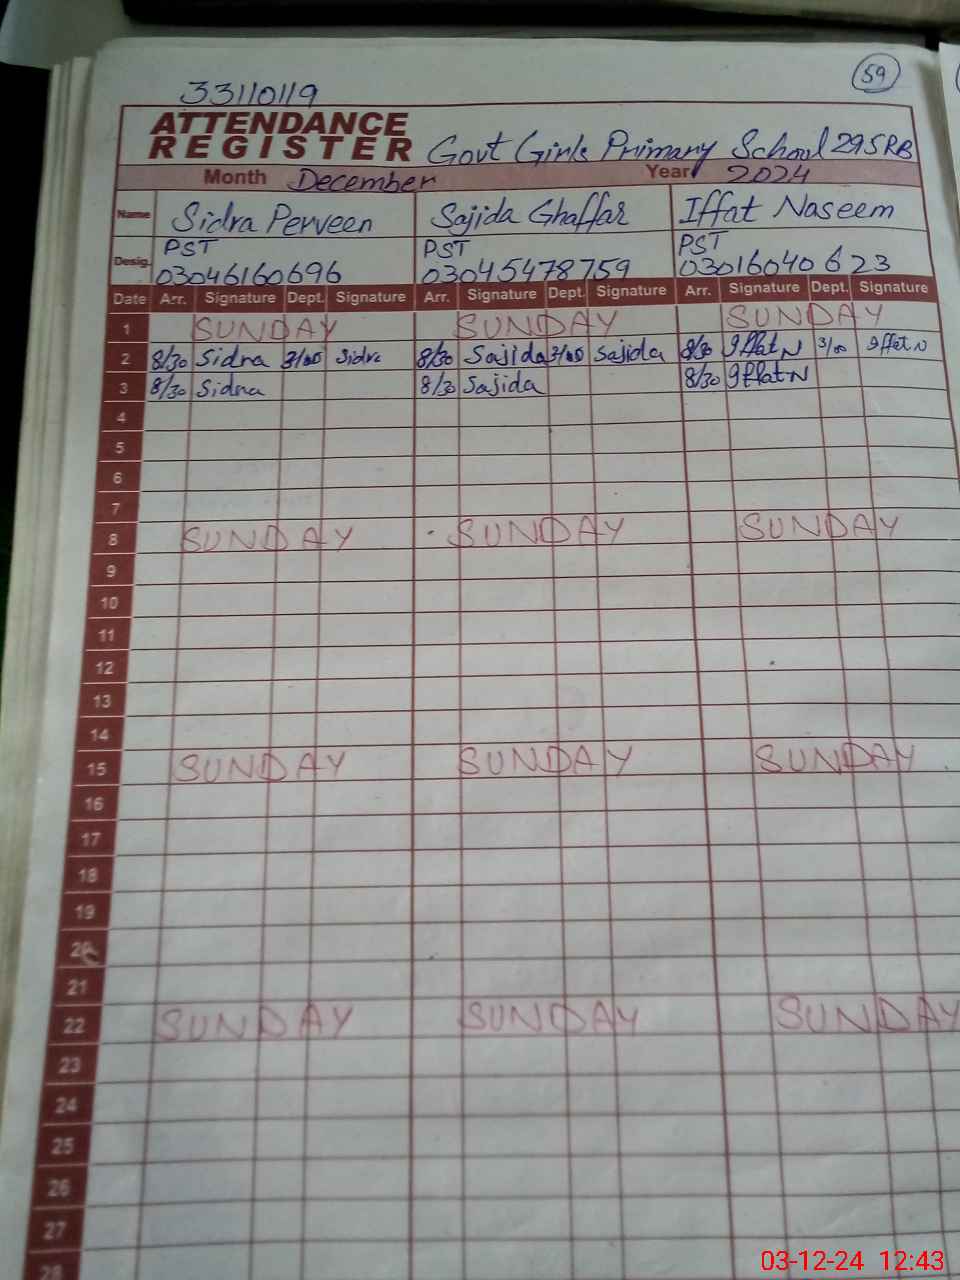 59
33110119
ATTENDANCE
REGISTER Govt Girls Primary School 295RB
Month December Year 2024
Name Sidra Perveen Sajida Ghaffar Iffat Naseem
Desig. PST PST PST
03046160696 03045478759 03016040623
Date Arr. Signature Dept. Signature Arr. Signature Dept. Signature Arr. Signature Dept. Signature
1 SUNDAY SUNDAY SUNDAY
2 8/30 Sidra 3/00 Sidra 8/30 Sajida 3/00 Sajida 8/30 Iffat N 3/00 Iffat N
3 8/30 Sidra 8/30 Sajida 8/30 Iffat N
4
5
6
7
8 SUNDAY SUNDAY SUNDAY
9
10
11
12
13
14
15 SUNDAY SUNDAY SUNDAY
16
17
18
19
20
21
22 SUNDAY SUNDAY SUNDAY
23
24
25
26
27
28
03-12-24 12:43